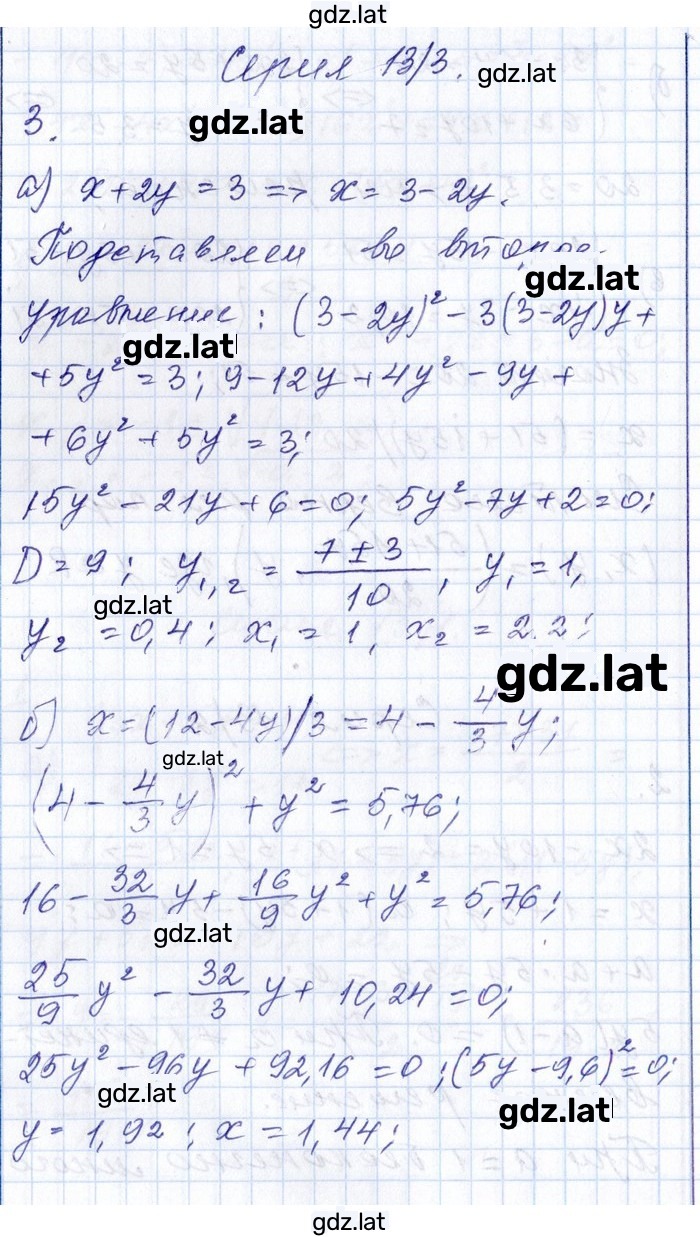 gdz.lat
Серия 13/3. gdz.lat
3. gdz.lat
а) x+2y = 3 => x = 3-2y.
Подставляем во
gdz.lat
уравнение: (3-2y)² - 3(3-2y)y +
gdz.lat
+5y² = 3; 9-12y+4y² - 9y +
+ 6y² + 5y² = 3;
15y² - 21y + 6 = 0; 5y² - 7y + 2 = 0;
D = 9; y₁,₂ = (7 ± 3)/10, y₁ = 1,
gdz.lat
y₂ = 0,4; x₁ = 1, x₂ = 2.2;
gdz.lat
б) x = (12-4y)/3 = 4 - 4/3 y;
gdz.lat
(4 - 4/3 y)² + y² = 5,76;
16 - 32/3 y + 16/9 y² + y² = 5,76;
gdz.lat
25/9 y² - 32/3 y + 10,24 = 0;
25y² - 96y + 92,16 = 0; (5y - 9,6)² = 0;
gdz.lat
gdz.lat
y = 1,92; x = 1,44;
gdz.lat